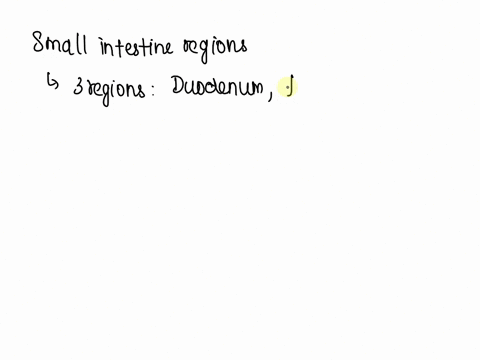 Small intestine regions
↳ 3 regions: Duodenum, J